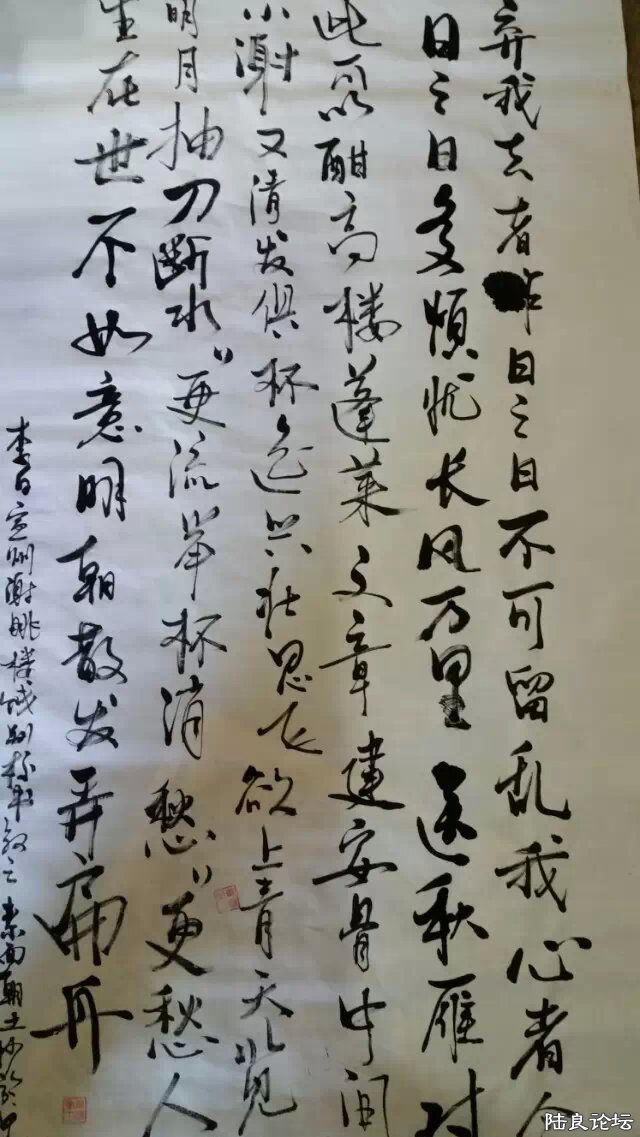 弃我去者昨日之日不可留乱我心者今
日之日多烦忧长风万里送秋雁对
此可以酣高楼蓬莱文章建安骨中间
小谢又清发俱怀逸兴壮思飞欲上青天览
明月抽刀断水〃更流举杯消愁〃更愁人
生在世不如意明朝散发弄扁舟
李白宣州谢朓楼饯别校书叔云
陆良论坛